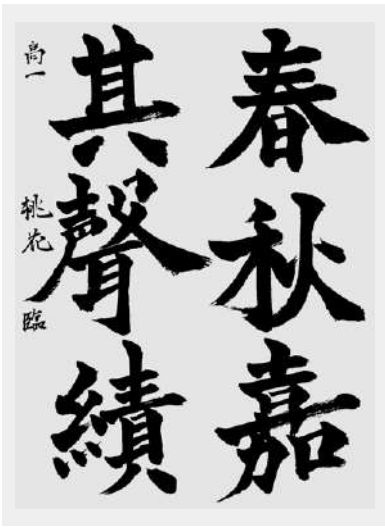 春秋嘉
其聲績
高一 桃花 臨